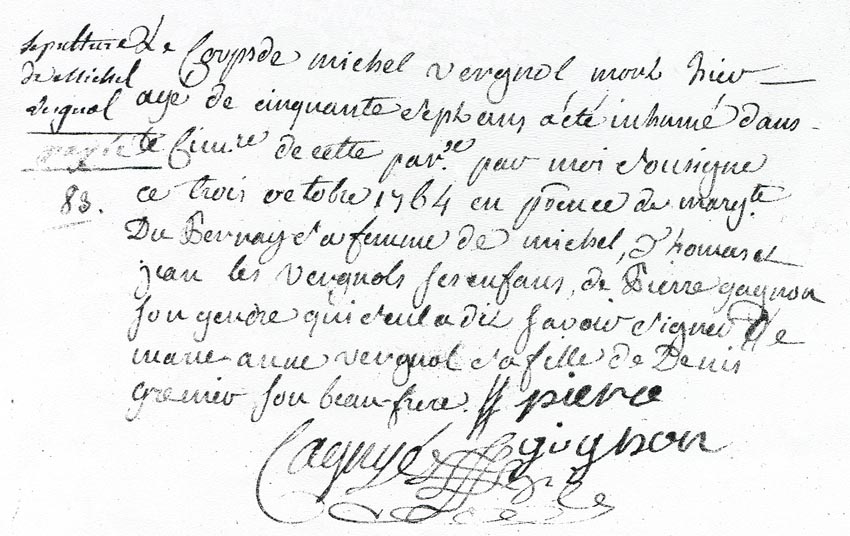 sepulture
de Michel
Vergnol
83.
Le Corps de michel vergnol mort hier
agé de cinquante Sept ans a été inhumé dans
le Cimre de cette parse par moi Soussigne
ce trois octobre 1764 en pnce de margte
Du Bernay Sa femme de michel, Thomas et
jean les Vergnols Ses enfans, de Pierre gagnon
Son gendre qui Seul a dit Savoir Signer De
marie anne vergnol Sa fille de Denis
Grenier Son beau-frere. pierre
gognon